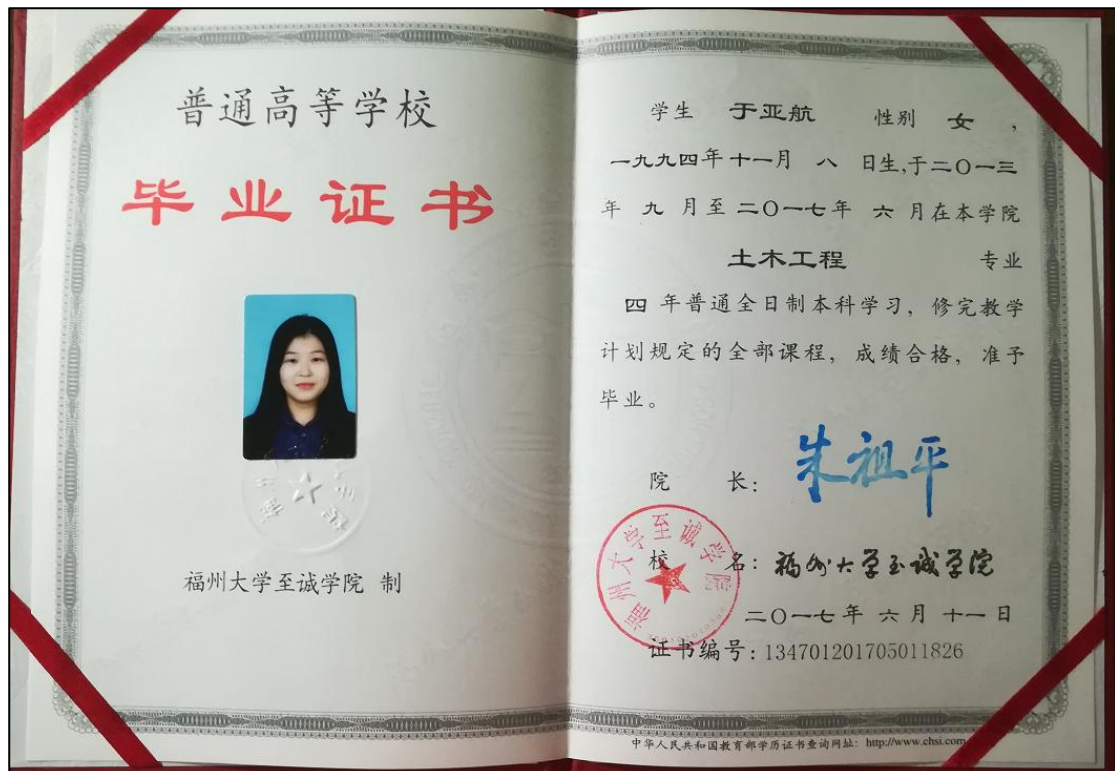 普通高等学校
毕业证书
福州大学至诚学院 制
学生 于亚航 性别 女，
一九九四年十一月 八 日生,于二〇一三
年 九 月至二〇一七年 六 月在本学院
土木工程 专业
四 年普通全日制本科学习，修完教学
计划规定的全部课程，成绩合格，准予
毕业。
院 长：朱祖平
福州大学至诚学院
校 名：福州大学至诚学院
二〇一七年 六 月 十一 日
证书编号：134701201705011826
中华人民共和国教育部学历证书查询网址：http://www.chsi.com